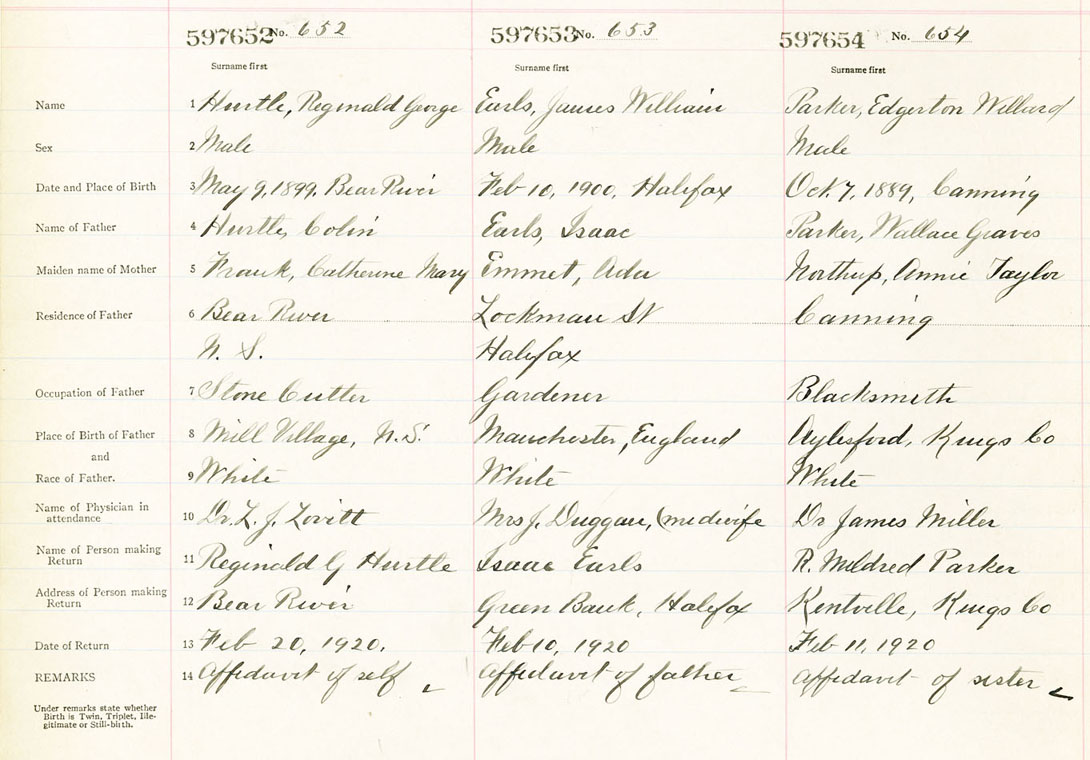 597652 No. 652 597653 No. 653 597654 No. 654
Surname first Surname first Surname first
Name 1 Hurtle, Reginald George Earls, James William Parker, Edgerton Willard
Sex 2 Male Male Male
Date and Place of Birth 3 May 9, 1899, Bear River Feb 10, 1900, Halifax Oct. 7, 1889, Canning
Name of Father 4 Hurtle, Colin Earls, Isaac Parker, Wallace Graves
Maiden name of Mother 5 Frank, Catherine Mary Emmet, Ada Northup, Annie Taylor
Residence of Father 6 Bear River Lockman St Canning
N. S. Halifax
Occupation of Father 7 Stone Cutter Gardener Blacksmith
Place of Birth of Father 8 Mill Village, N.S. Manchester, England Aylesford, Kings Co
and
Race of Father. 9 White White White
Name of Physician in
attendance 10 Dr. L. J. Lovitt Mrs J. Duggan, (midwife Dr James Miller
Name of Person making
Return 11 Reginald G Hurtle Isaac Earls R. Mildred Parker
Address of Person making
Return 12 Bear River Green Bank, Halifax Kentville, Kings Co
Date of Return 13 Feb 20, 1920. Feb 10, 1920 Feb 11, 1920
REMARKS 14 Affidavit of self Affidavit of father Affidavit of sister
Under remarks state whether
Birth is Twin, Triplet, Ille-
gitimate or Still-birth.